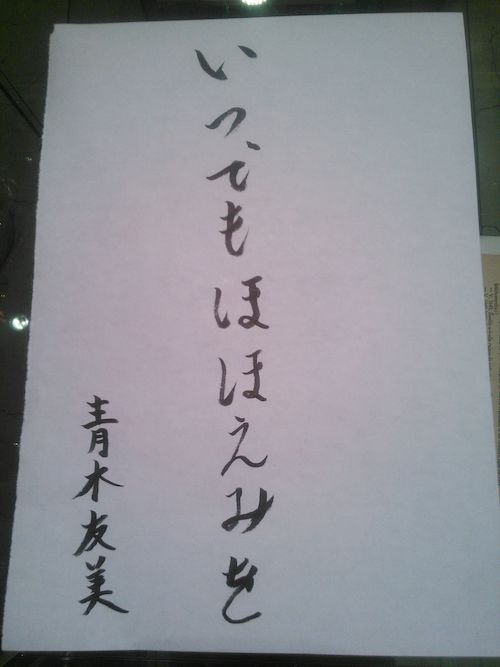 いつでもほほえみを
青木友美